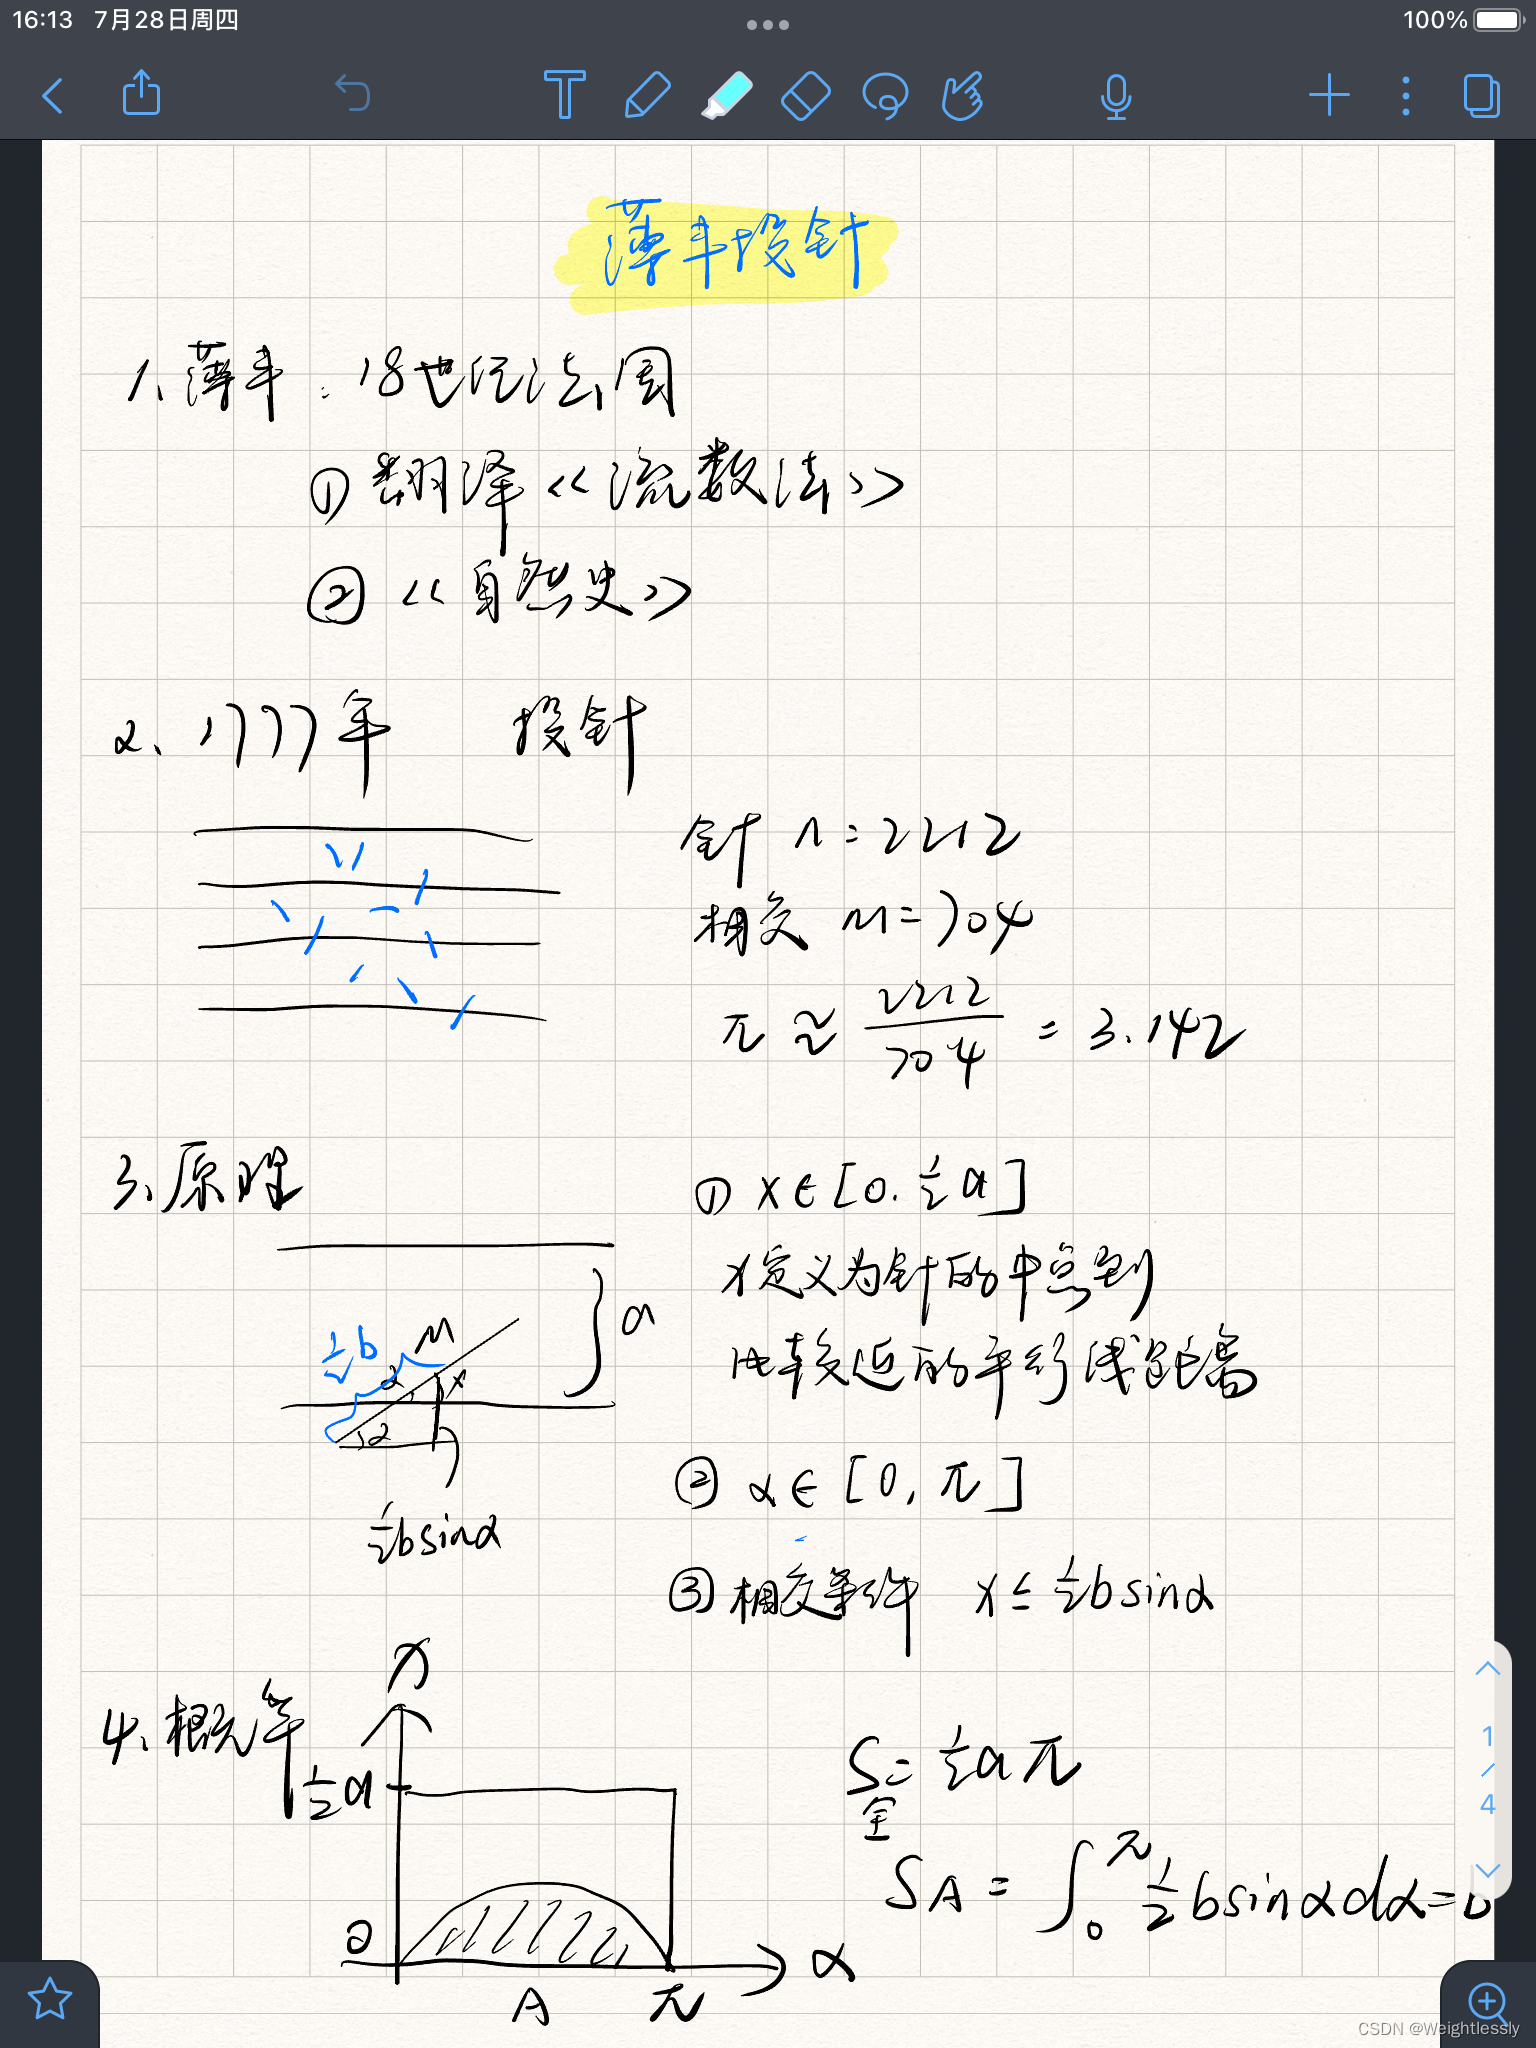 16:13 7月28日周四
100%
薄丰投针
1、薄丰：18世纪法国
① 翻译《流数法》
② 《自然史》
2、1777年 投针
针 n=2212
相交 m=704
π ≈ 2212/704 = 3.142
3、原理
① x∈[0. ½a]
x定义为针的中点到
比较近的平行线距离
a
½b
M
α
x
α
½bsinα
② α∈[0,π]
③ 相交条件 x≤½bsinα
4、概率
x
½a
0
A
π
α
S全=½aπ
SA=∫₀^π ½bsinαdα=b
1
/
4
CSDN @Weightlessly